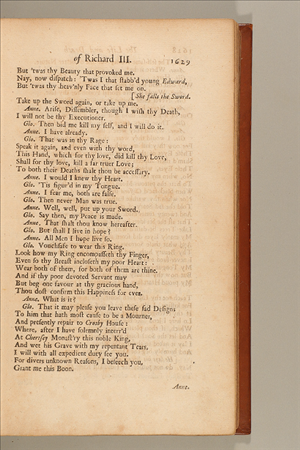 of Richard III. 1629
But 'twas thy Beauty that provoked me.
Nay, now dispatch: 'Twas I that stabb'd young Edward,
But 'twas thy heav'nly Face that set me on.
[She falls the Sword.
Take up the Sword again, or take up me.
Anne. Arise, Dissembler, though I wish thy Death,
I will not be thy Executioner.
Glo. Then bid me kill my self, and I will do it.
Anne. I have already.
Glo. That was in thy Rage:
Speak it again, and even with thy word,
This Hand, which for thy love, did kill thy Love,
Shall for thy love, kill a far truer Love;
To both their Deaths shalt thou be accessary.
Anne. I would I knew thy Heart.
Glo. 'Tis figur'd in my Tongue.
Anne. I fear me, both are false.
Glo. Then never Man was true.
Anne. Well, well, put up your Sword.
Glo. Say then, my Peace is made.
Anne. That shalt thou know hereafter.
Glo. But shall I live in hope?
Anne. All Men I hope live so.
Glo. Vouchsafe to wear this Ring.
Look how my Ring encompasseth thy Finger,
Even so thy Breast incloseth my poor Heart:
Wear both of them, for both of them are thine.
And if thy poor devoted Servant may
But beg one favour at thy gracious hand,
Thou dost confirm his Happiness for ever.
Anne. What is it?
Glo. That it may please you leave these sad Designs
To him that hath most cause to be a Mourner,
And presently repair to Crosby House:
Where, after I have solemnly interr'd
At Chertsey Monast'ry this noble King,
And wet his Grave with my repentant Tears,
I will with all expedient duty see you.
For divers unknown Reasons, I beseech you,
Grant me this Boon.
Anne.